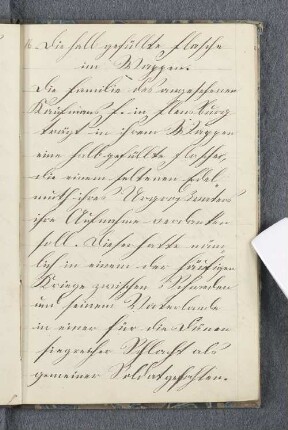 16. Die halb gefüllte Flasche
im Wappen.
Die Familie des angesehenen
Kaufmans F. in Flensburg
trägt in ihrem Wappen
eine halbgefüllte Flasche,
die einem seltenen Edel¬
muth ihres Urgroßvaters
ihre Aufnahme verdanken
soll. Dieser hatte näm¬
lich in einem der häufigen
Kriege zwischen Schweden
und seinem Vaterlande
in einer für die Dänen
siegreicher Schlacht als
gemeiner Soldat gefochten.